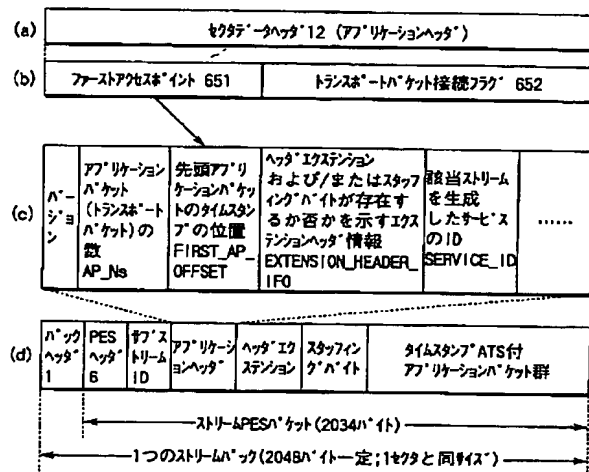 (a)
セクタデータヘッダ12 (アプリケーションヘッダ)
(b)
ファーストアクセスポイント 651
トランスポートパケット接続フラグ 652
(c)
バージョン
アプリケーション
パケット
(トランスポート
パケット)の
数
AP_Ns
先頭アプリ
ケーションパケッ
トのタイムスタン
プの位置
FIRST_AP_
OFFSET
ヘッダエクステンション
および/またはスタッフ
ィングバイトが存在す
るか否かを示すエクス
テンションヘッダ情報
EXTENSION_HEADER_
IFO
該当ストリーム
を生成
したサービス
のID
SERVICE_ID
……
(d)
パック
ヘッダ
1
PES
ヘッダ
6
サブス
トリーム
ID
アプリケーシ
ョンヘッダ
ヘッダエク
ステンション
スタッフィン
グバイト
タイムスタンプATS付
アプリケーションパケット群
ストリームPESパケット(2034バイト)
1つのストリームパック(2048バイト一定;1セクタと同サイズ)